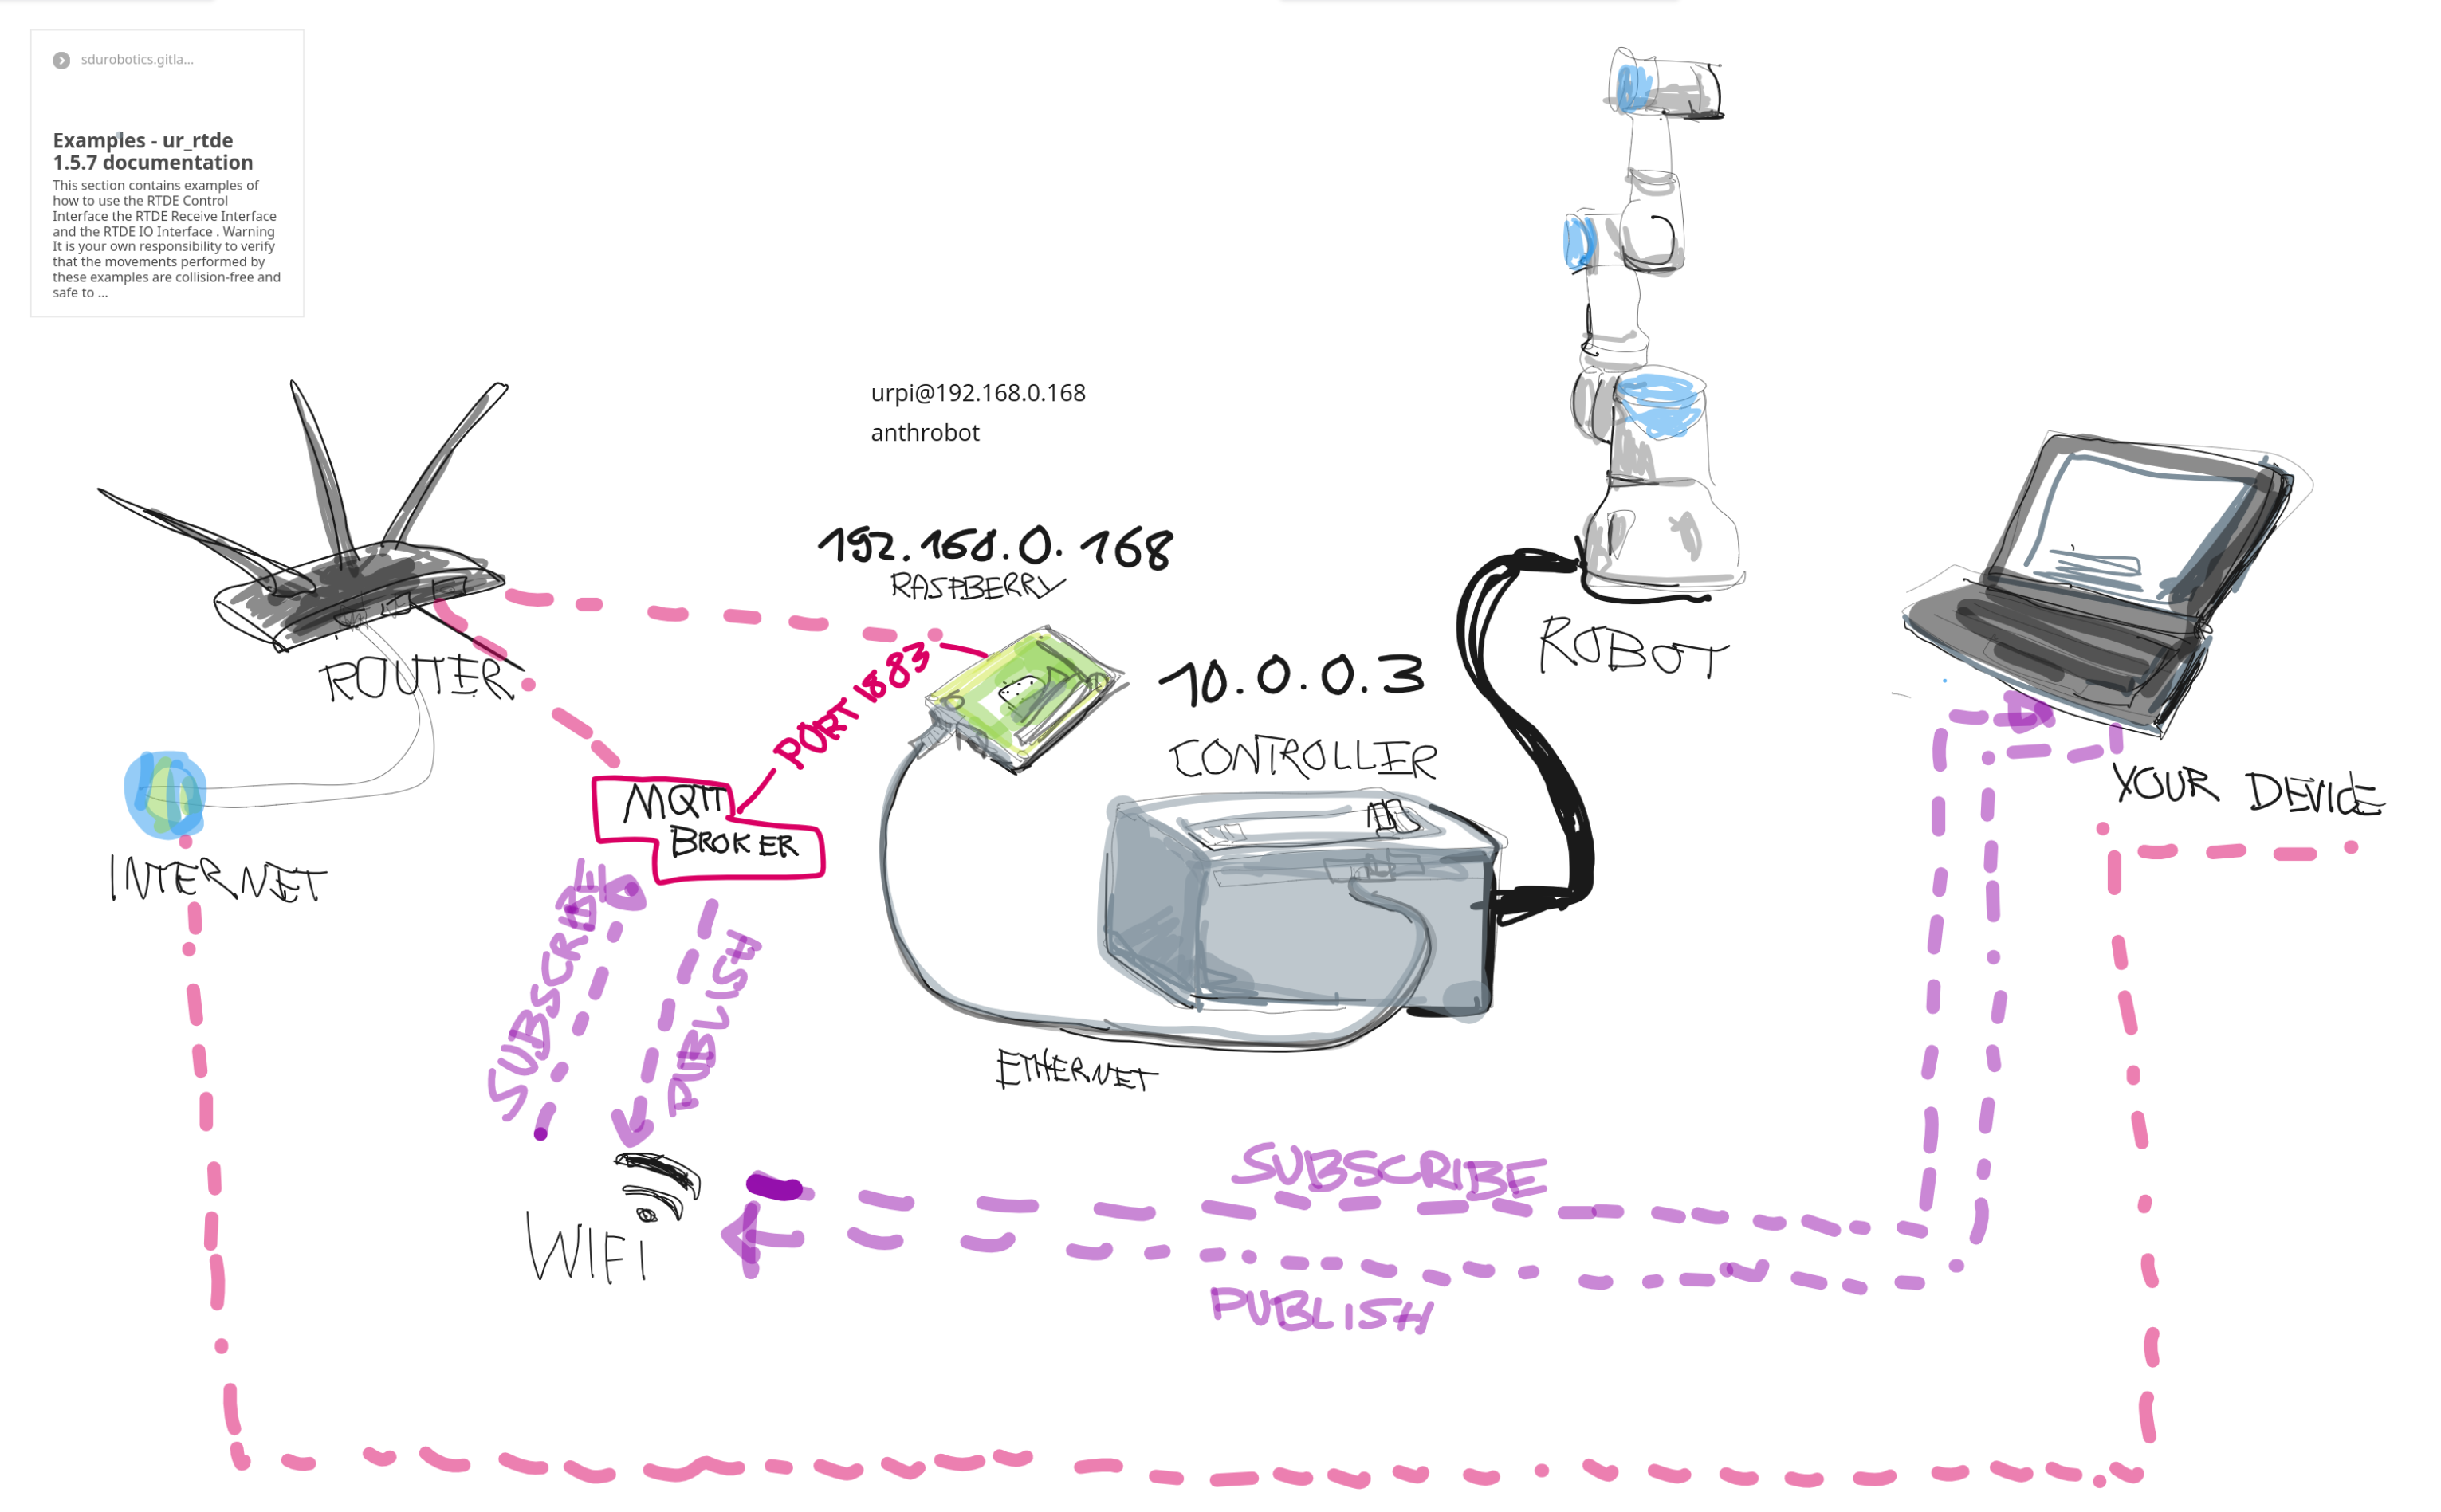 sdurobotics.gitla...
Examples - ur_rtde
1.5.7 documentation
This section contains examples of
how to use the RTDE Control
Interface the RTDE Receive Interface
and the RTDE IO Interface . Warning
It is your own responsibility to verify
that the movements performed by
these examples are collision-free and
safe to ...
urpi@192.168.0.168
anthrobot
192.168.0.168
RASPBERRY
ROUTER
PORT 1883
10.0.0.3
ROBOT
CONTROLLER
YOUR DEVICE
MQTT
BROKER
INTERNET
SUBSCRIBE
PUBLISH
ETHERNET
SUBSCRIBE
WIFI
PUBLISH